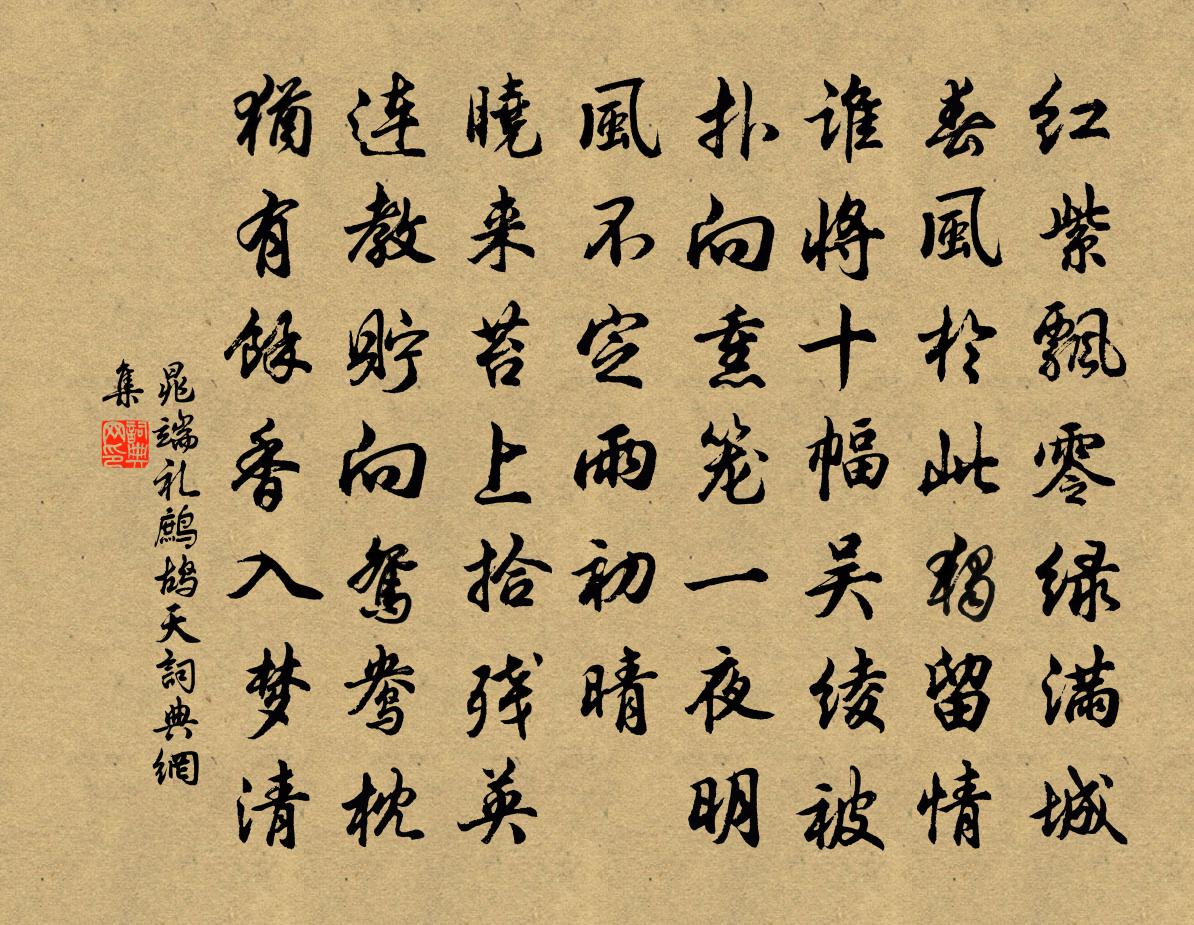 红紫飄零绿满城
春風於此獨留情
谁将十幅吴绫被
扑向熏笼一夜明
風不定雨初晴
曉来苔上拾残英
连教貯向鴛鴦枕
猶有餘香入梦清
晁端礼鷓鴣天詞典網
集
詞典
网印